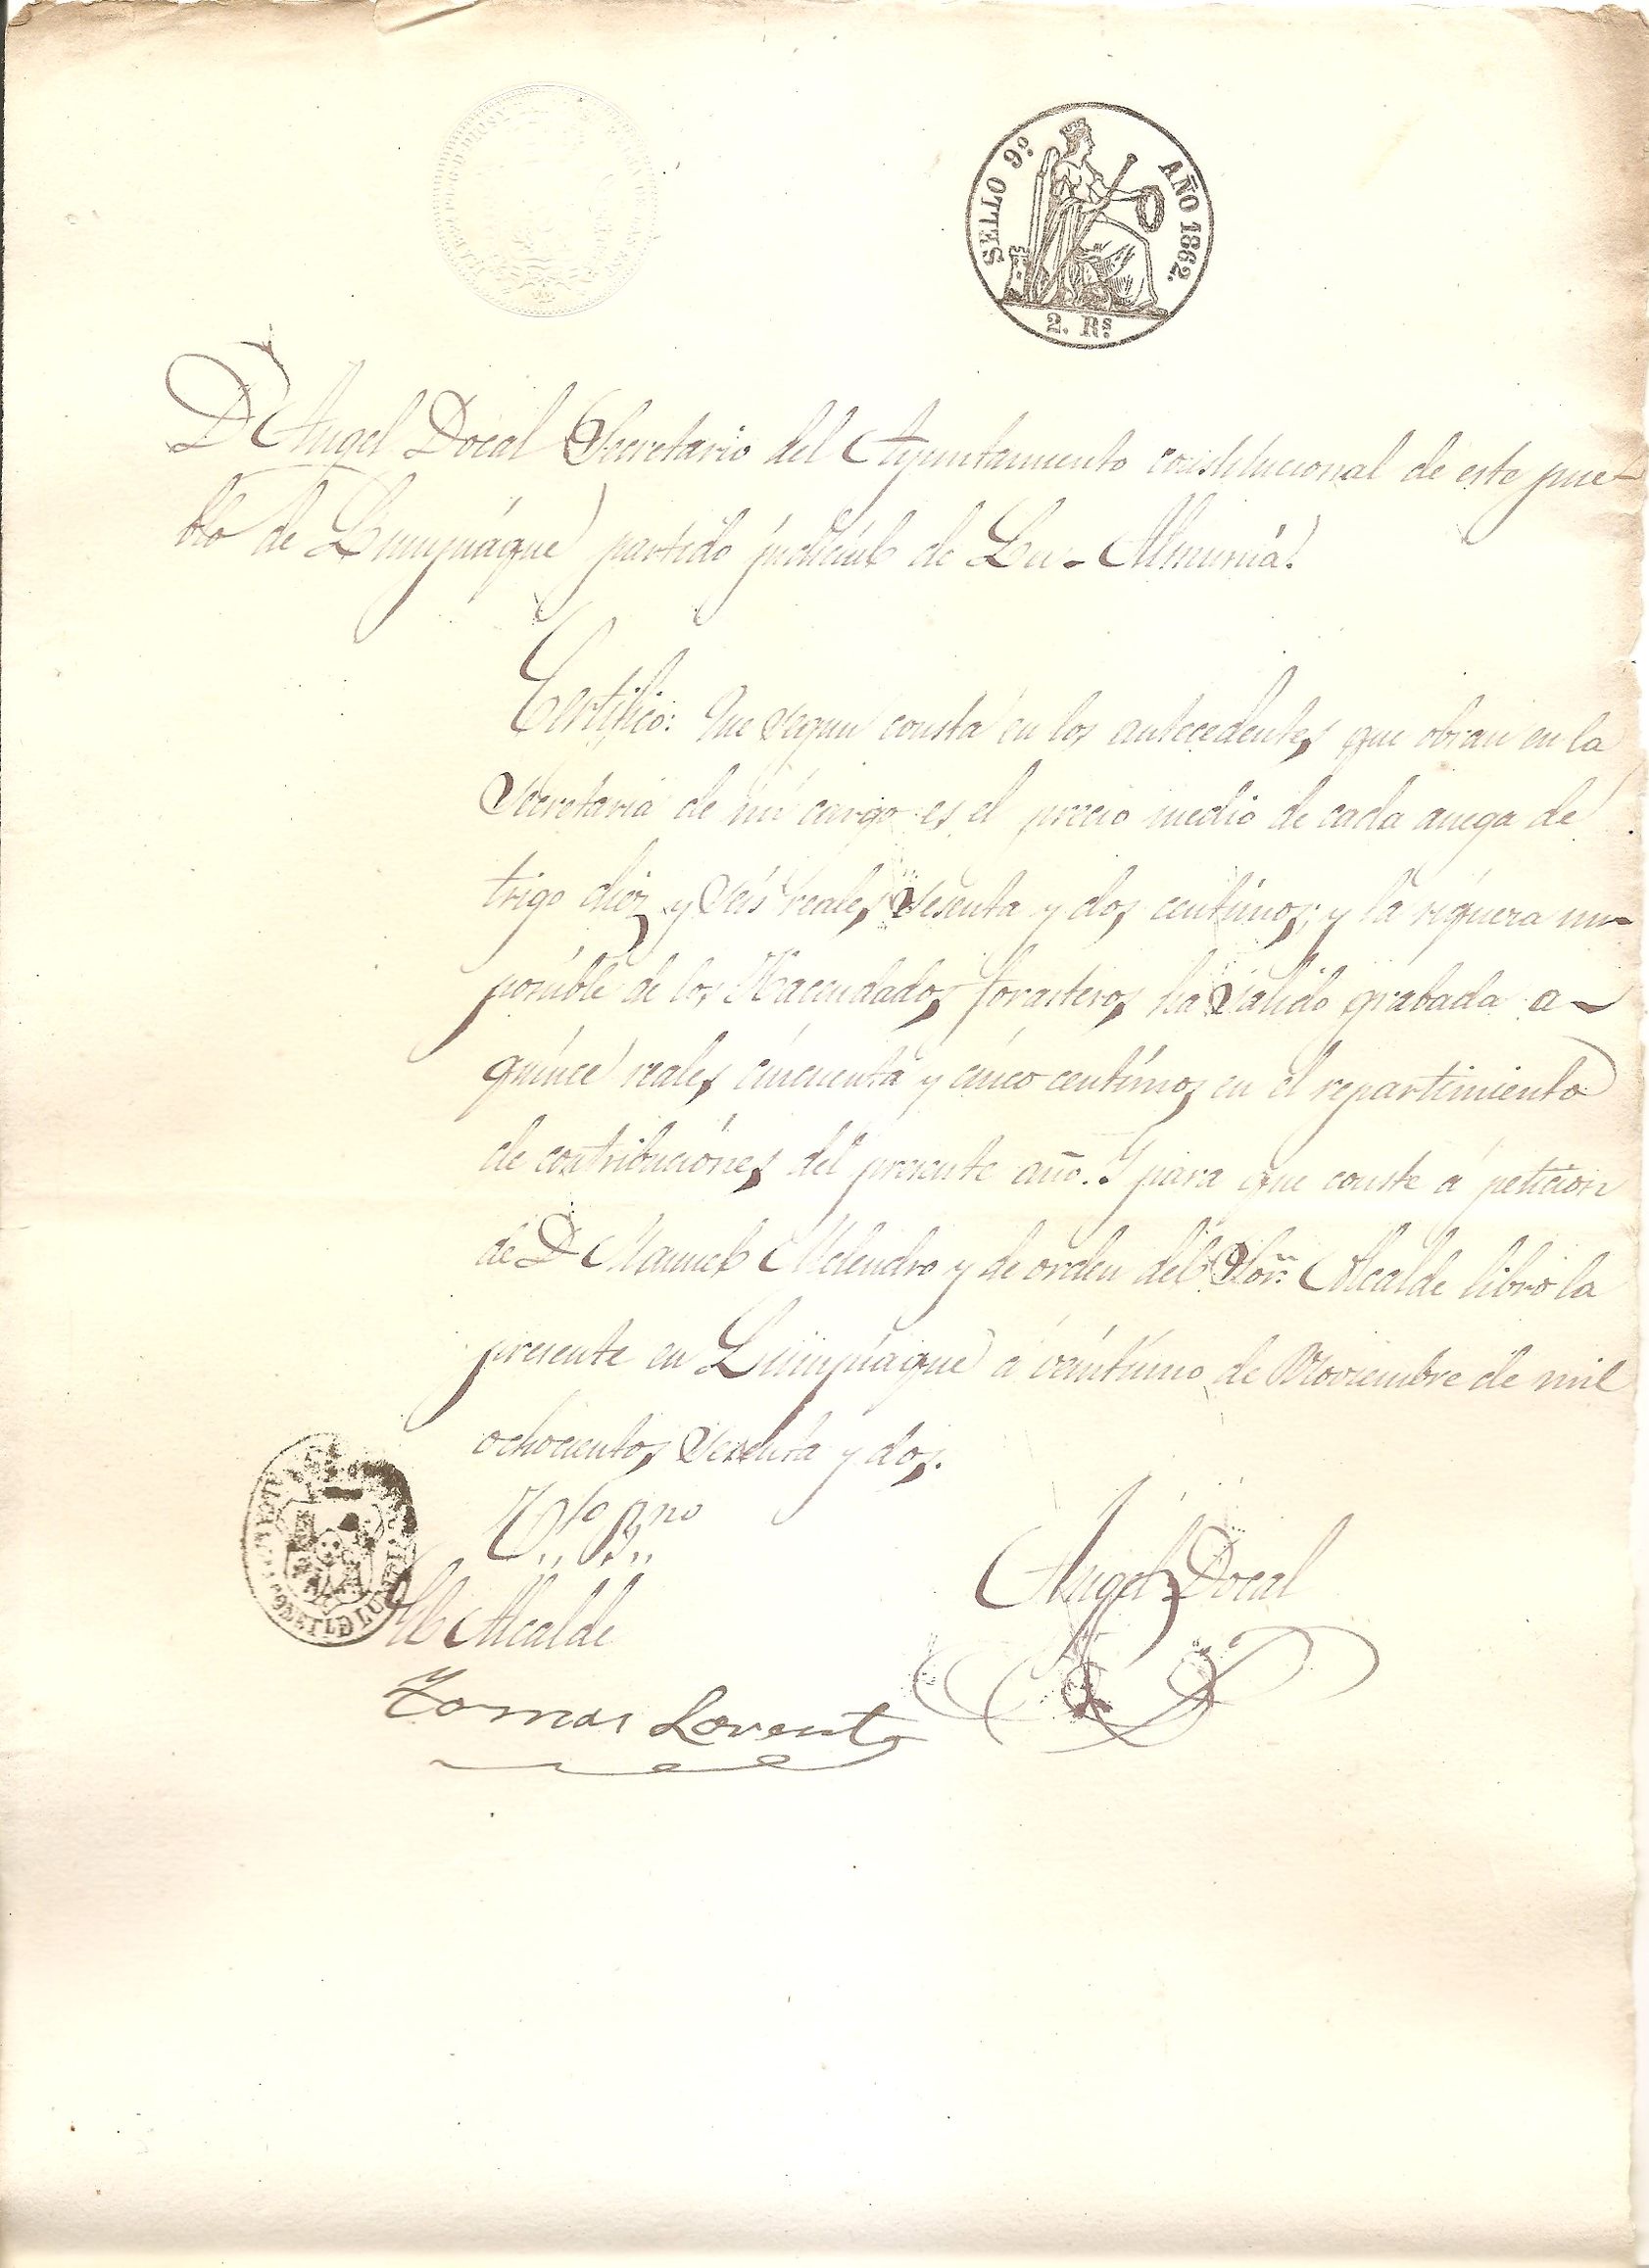 SELLO 9º AÑO 1862.
2. Rs.
Dn Angel Doval Secretario del Ayuntamiento constitucional de este pue-
blo de Lumpiáque partido judicial de La-Almunia.
Certifico: Que segun consta en los antecedentes que obran en la
Secretaria de mi cargo es el precio medio de cada anega de
trigo diez y seis reales sesenta y dos centimos; y la riquera im-
ponible de los Hacendados forasteros ha salido grabada a-
quince reales cincuenta y cinco centimos en el repartimiento
de contribuciones del presente año. Y para que conste á peticion
de Dn Manuel Melendro y de orden del Sor. Alcalde libro la
presente en Lumpiaque á veintiuno de Noviembre de mil
ochocientos sesenta y dos.
Vto Bno
El Alcalde
Angel Doval
Tomas Lorente